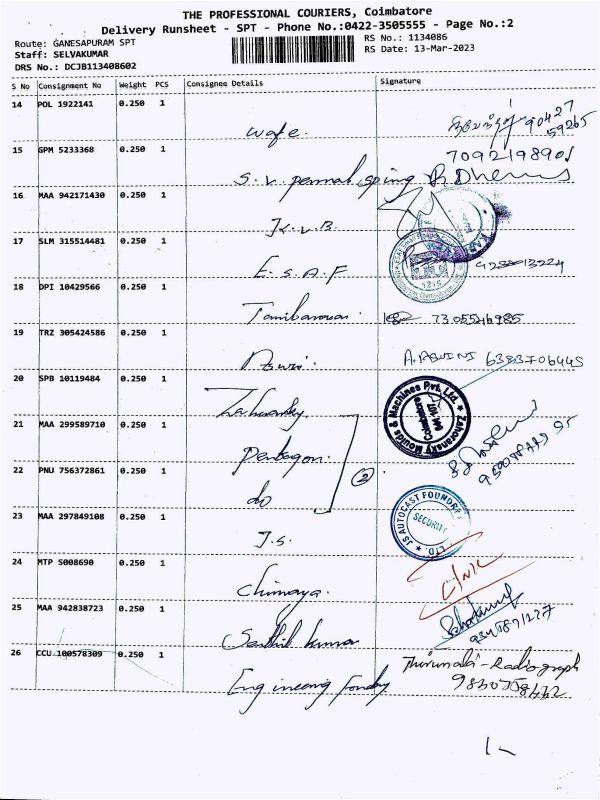 THE PROFESSIONAL COURIERS, Coimbatore
Delivery Runsheet - SPT - Phone No.:0422-3505555 - Page No.:2
Route: GANESAPURAM SPT
Staff: SELVAKUMAR
DRS No.: DCJB113408602
RS No.: 1134086
RS Date: 13-Mar-2023
S No Consignment No Weight PCS Consignee Details Signature
14 POL 1922141 0.250 1
90427
59265
15 GPM 5233368 0.250 1
7092198901
S.V. permal sping R. Dhenus
16 MAA 942171430 0.250 1
K.V.B
17 SLM 315514481 0.250 1
E.S.A.F
18 DPI 10429566 0.250 1
7305546985
19 TRZ 305424586 0.250 1
Aswini. A. ASWINI 6383706445
20 SPB 10119484 0.250 1
Zahoransky Moulds & Machines Pvt. Ltd.
Coimbatore
641 107
21 MAA 299589710 0.250 1
Pentagon
22 PNU 756372861 0.250 1
do
2
23 MAA 297849108 0.250 1
J.S.
JS AUTOCAST FOUNDRY LTD.
SECURITY
24 MTP 5008690 0.250 1
Chinmaya.
25 MAA 942838723 0.250 1
Senthil kumar
26 CCU 100578309 0.250 1
Thirumalai - Radiograph
Engineering Fondry